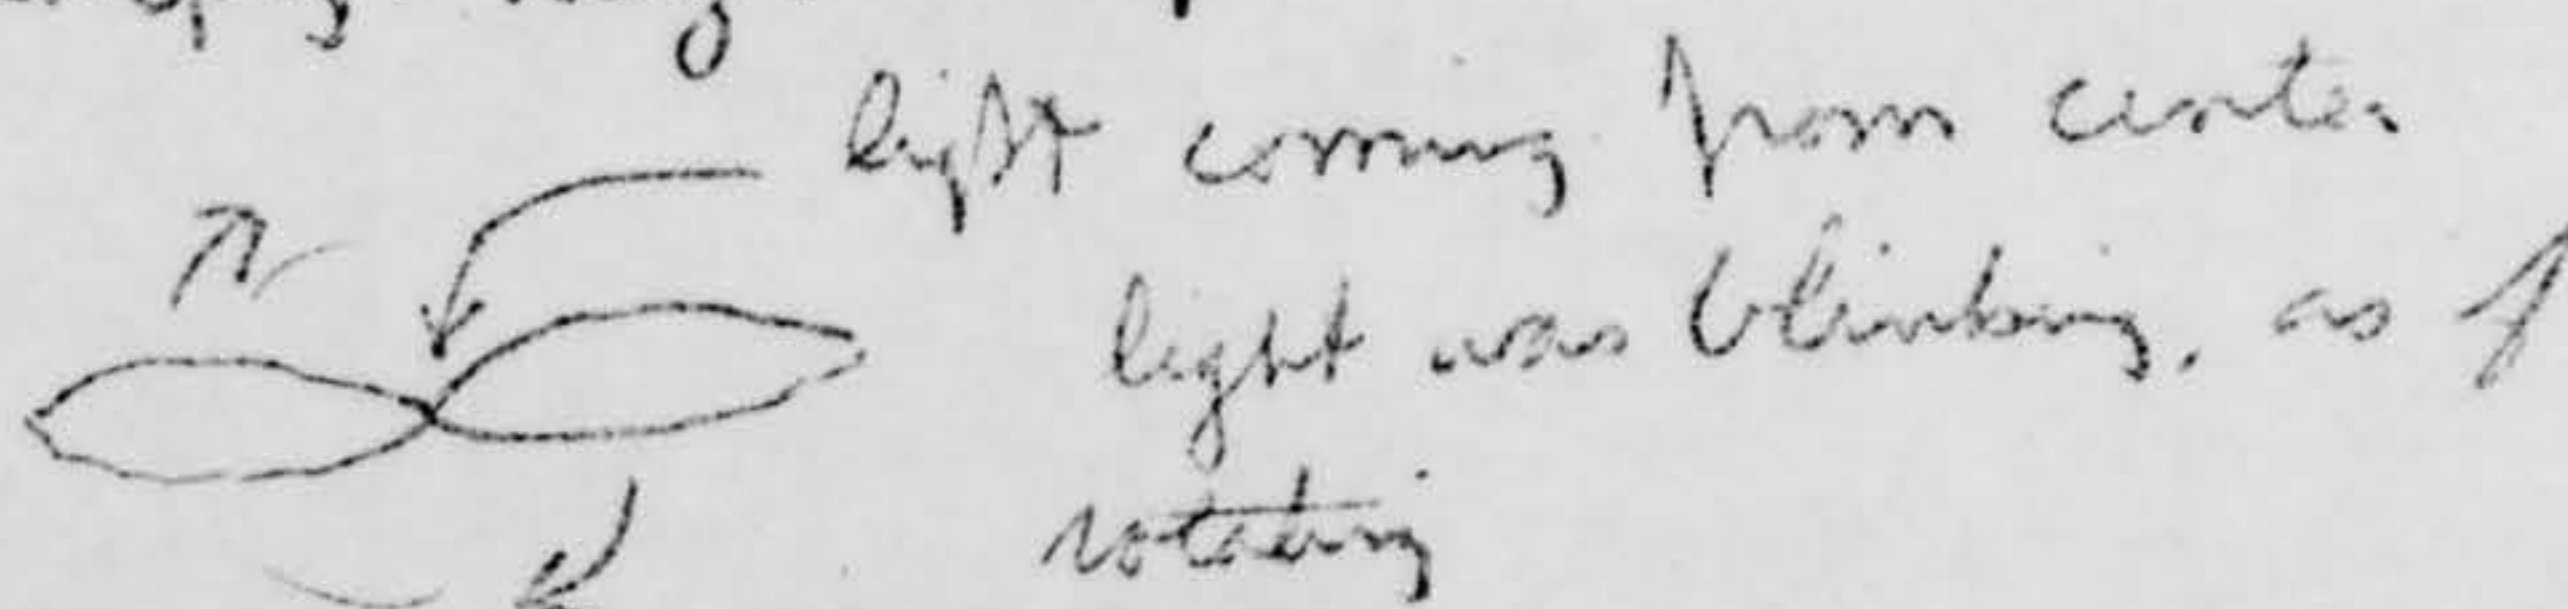 light coming from center
light was blinking, as if
rotating